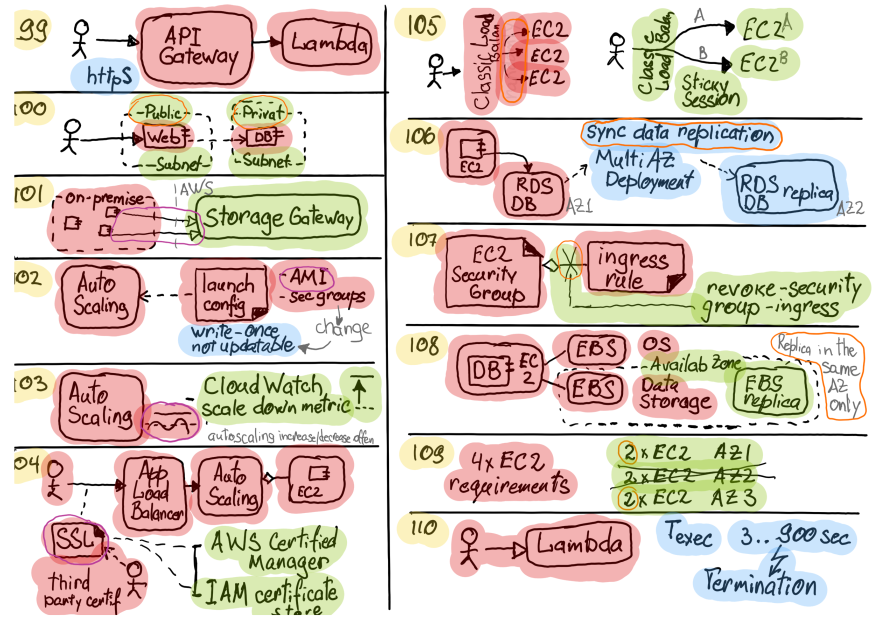 99
API
Gateway
Lambda
https
100
Public
Privat
Web
DB
Subnet
Subnet
101
on-premise
AWS
Storage Gateway
102
Auto
Scaling
launch
config
- AMI
- sec groups
change
write-once
not updatable
103
Auto
Scaling
Cloud Watch
scale down metric
autoscaling increase/decrease often
104
App
Load
Balancer
Auto
Scaling
EC2
SSL
third
party certif
AWS Certified
Manager
IAM certificate
store
105
Classic Load
Balan
EC2
EC2
EC2
Classic
Load Balan
A
EC2 A
B
EC2 B
Sticky
Session
106
EC2
RDS
DB
AZ1
sync data replication
Multi AZ
Deployment
RDS
DB replica
AZ2
107
EC2
Security
Group
ingress
rule
revoke-security
group-ingress
108
DB
EC
2
EBS
OS
EBS
Data
Storage
Availab Zone
EBS
replica
Replica in the
same
AZ
only
109
4x EC2
requirements
2 x EC2 AZ1
2 x EC2 AZ2
2 x EC2 AZ3
110
Lambda
Texec 3..900 sec
Termination